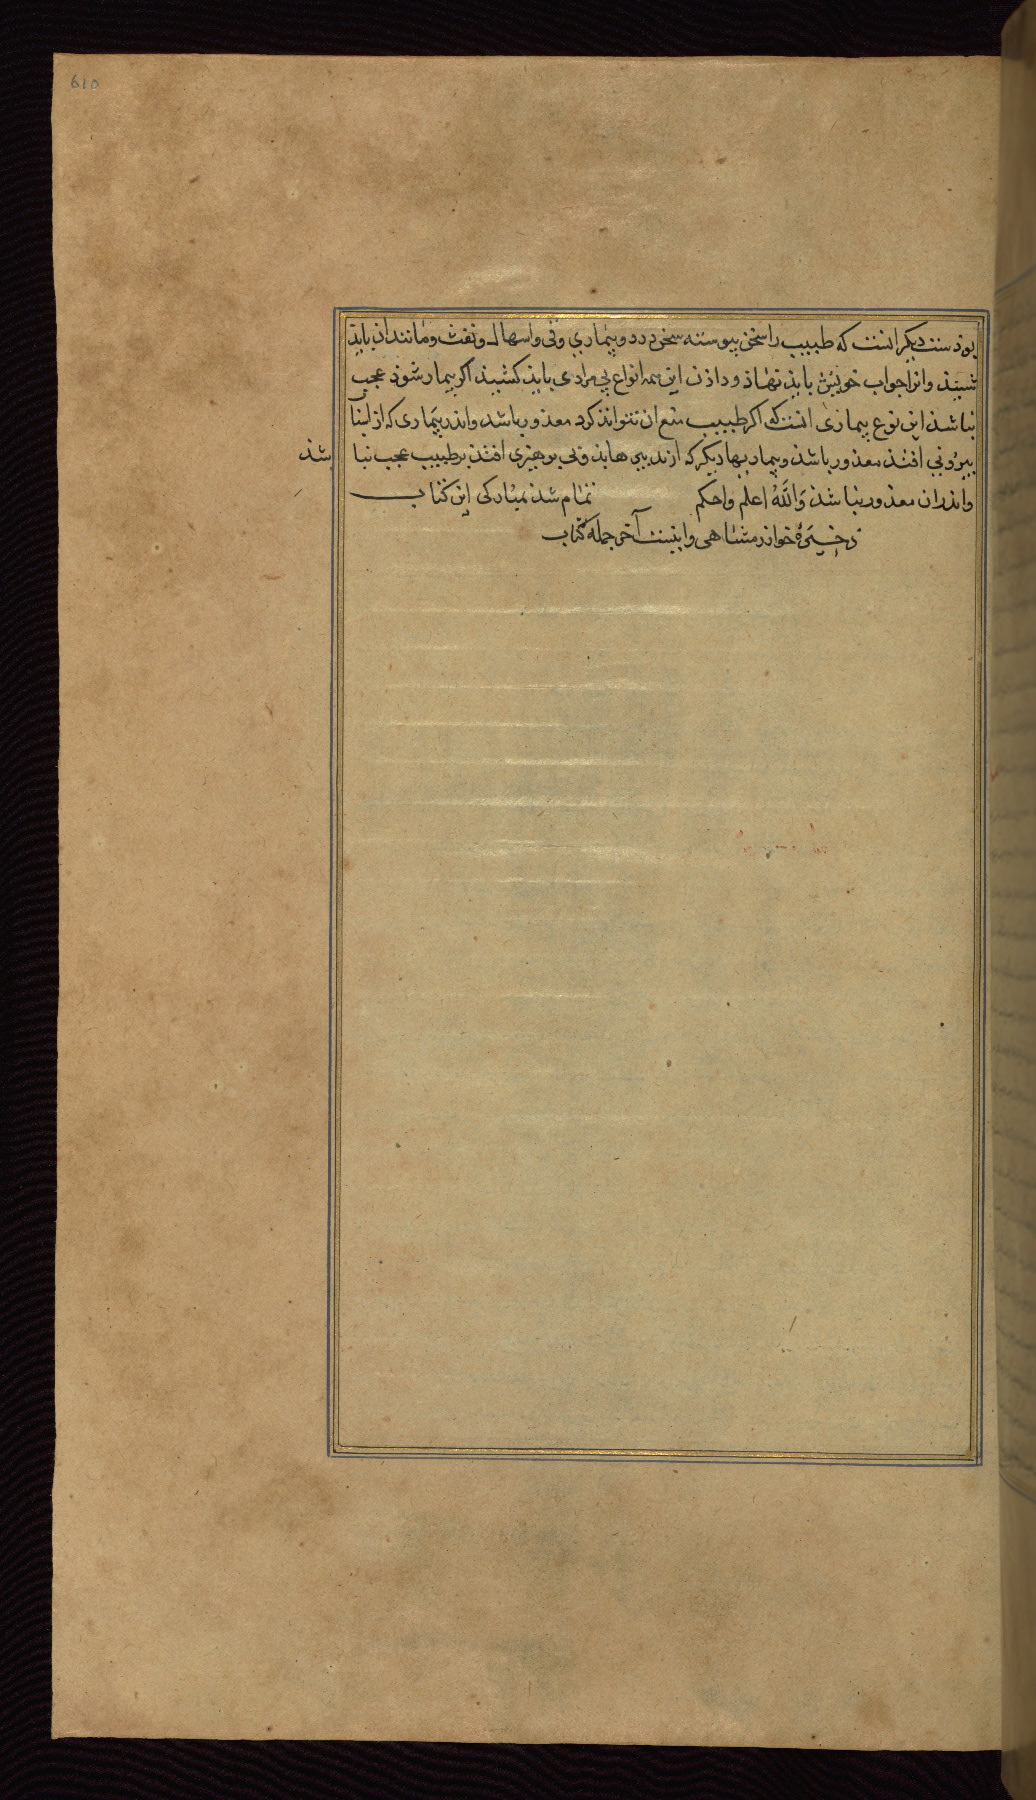 610
بوذست دیکر انست که طبیب را سخن پیوسته سخن درد و بیماری وقی واسهال ونفث ومانند ان بایذ
شنیذ وانرا جواب خویش بایذ نهاذ و داذن این همه انواع بی مرادی بایذ کشیذ اکر بیمار شوذ عجب
نباشذ این نوع بیماری انست که اکر طبیب منع ان نتوانذ کرد معذور باشد واندر بیماری که از اسباب
بیرونی افتذ معذور باشذ و بیماریها دیکر که از تدبیر هابذ وبی پرهیزی افتذ بر طبیب عجب نبا شذ
واندران معذور نباشذ وَاللهُ اعلم واحکم تمام شذ بمبارکی این کتاب
ذخیرهٔ خوارزمشاهی واینست آخر جمله کتاب